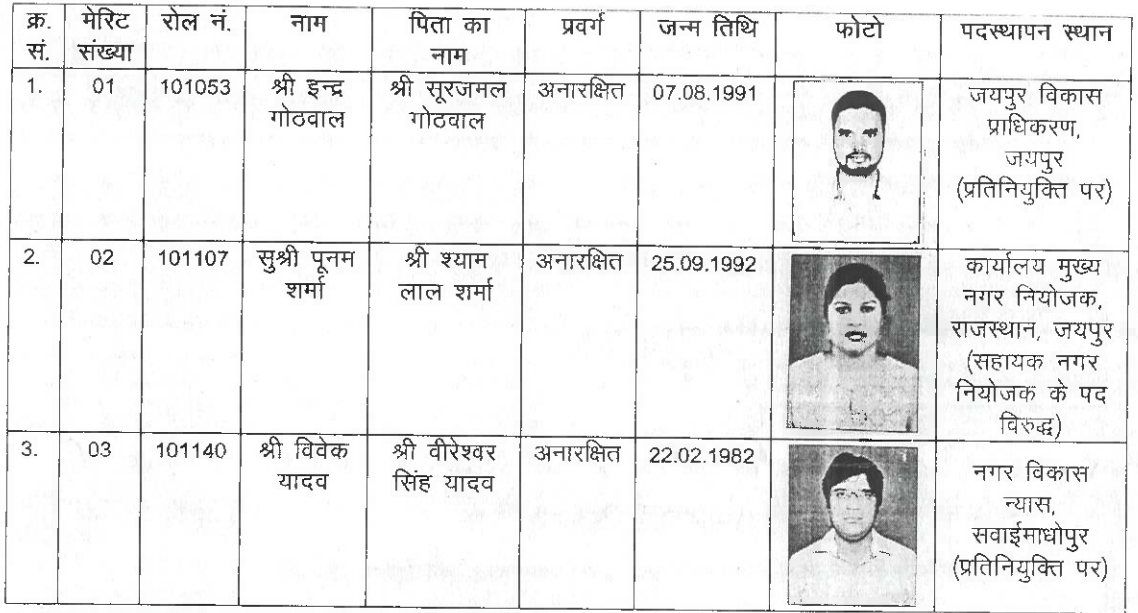 क्र. सं. मेरिट संख्या रोल नं. नाम पिता का नाम प्रवर्ग जन्म तिथि फोटो पदस्थापन स्थान
1. 01 101053 श्री इन्द्र गोठवाल श्री सूरजमल गोठवाल अनारक्षित 07.08.1991 जयपुर विकास प्राधिकरण, जयपुर (प्रतिनियुक्ति पर)
2. 02 101107 सुश्री पूनम शर्मा श्री श्याम लाल शर्मा अनारक्षित 25.09.1992 कार्यालय मुख्य नगर नियोजक, राजस्थान, जयपुर (सहायक नगर नियोजक के पद विरुद्ध)
3. 03 101140 श्री विवेक यादव श्री वीरेश्वर सिंह यादव अनारक्षित 22.02.1982 नगर विकास न्यास, सवाईमाधोपुर (प्रतिनियुक्ति पर)